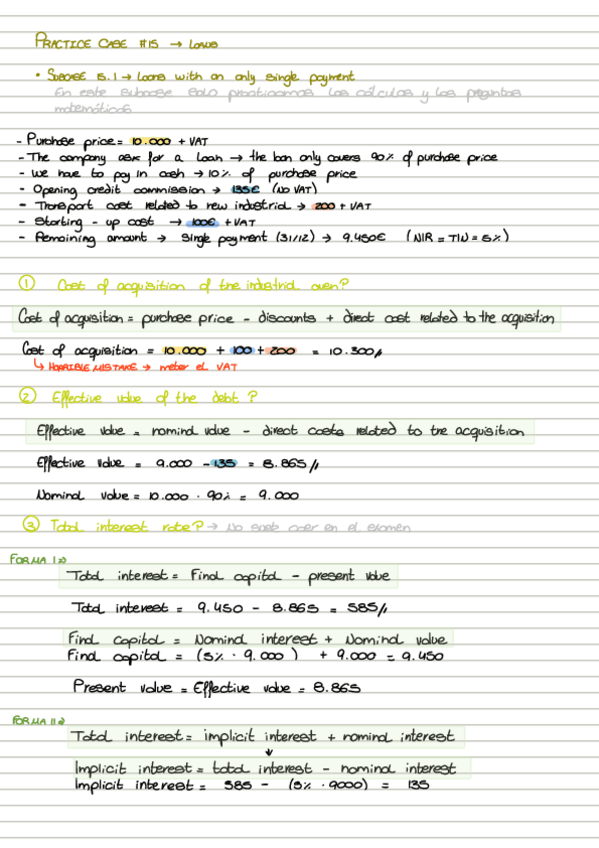 PRACTICE CASE #15 → Loans
• SUBCASE 15.1 → Loans with an only single payment
En este subcase solo practicamos los cálculos y las preguntas
matemáticas
- Purchase price = 10.000 + VAT
- The company ask for a loan → the loan only covers 90% of purchase price
- We have to pay in cash → 10% of purchase price
- Opening credit commission → 135€ (NO VAT)
- Transport cost related to new industrial → 200 + VAT
- Starting-up cost → 100€ + VAT
- Remaining amount → single payment (31/12) → 9.450€ (NIR = TIN = 5%)
① Cost of acquisition of the industrial oven?
Cost of acquisition = purchase price - discounts + direct cost related to the acquisition
Cost of acquisition = 10.000 + 100 + 200 = 10.300//
↳ HORRIBLE MISTAKE → meter el VAT
② Effective value of the debt?
Effective value = nominal value - direct costs related to the acquisition
Effective value = 9.000 - 135 = 8.865//
Nominal value = 10.000 · 90% = 9.000
③ Total interest rate? → No suele caer en el examen
FORMA I ⇒
Total interest = Final capital - present value
Total interest = 9.450 - 8.865 = 585//
Final capital = Nominal interest + Nominal value
Final capital = (5% · 9.000) + 9.000 = 9.450
Present value = Effective value = 8.865
FORMA II ⇒
Total interest = implicit interest + nominal interest
↓
Implicit interest = total interest - nominal interest
Implicit interest = 585 - (5% · 9000) = 135